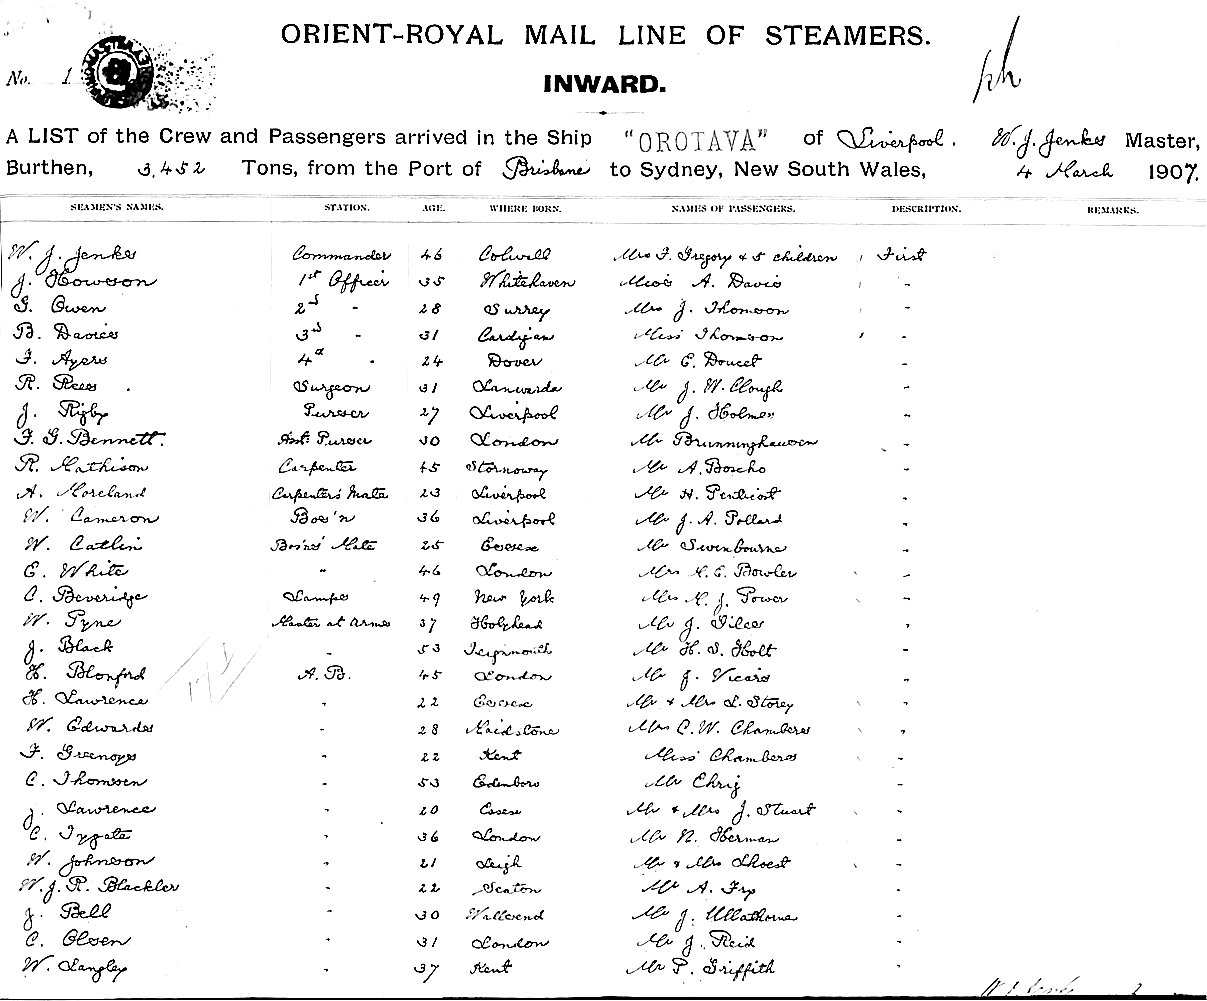 ORIENT-ROYAL MAIL LINE OF STEAMERS.
No. 1
INWARD.
A LIST of the Crew and Passengers arrived in the Ship "OROTAVA" of Liverpool. W. J. Jenkes Master,
Burthen, 3,452 Tons, from the Port of Brisbane to Sydney, New South Wales, 4 March 1907.
SEAMEN'S NAMES. STATION. AGE. WHERE BORN. NAMES OF PASSENGERS. DESCRIPTION. REMARKS.
W. J. Jenkes Commander 46 Colwell Mrs F. Gregory & 5 children First
J. Howson 1st Officer 35 Whitehaven Miss A. Davis "
G. Owen 2d - 28 Surrey Mrs J. Thomson -
B. Davies 3d - 31 Cardigan Miss Thomson -
F. Ayers 4th - 24 Dover Mr E. Doucet -
R. Rees Surgeon 31 Mr J. W. Clough -
J. Rigby Purser 27 Liverpool Mr J. Holmes -
F. G. Bennett. Asst Purser 30 London Mr Brunninghausen -
R. Mathison Carpenter 45 Stornoway Mr A. Boscho -
A. Moreland Carpenter's Mate 23 Liverpool Mr H. -
W. Cameron Bos'n 36 Liverpool Mr J. A. Pollard -
W. Catlin Bos'ns' Mate 25 Essex Mr Swinbourne -
E. White " 46 London Mrs E. Bowler -
C. Beveridge Lamps 49 New York Mrs J. Power -
W. Pyne Master at Arms 37 Holyhead Mr J. Giles "
J. Black - 53 Teignmouth Mr H. S. Holt -
H. Blonford A.B. 45 London Mr J. Vicars -
H. Lawrence " 22 Essex Mr & Mrs L. Storey "
W. Edwardes - 28 Maidstone Mrs C. W. Chambers "
F. Greenops - 22 Kent Miss Chambers -
C. Thomsen - 53 Edenboro Mr Chrig -
J. Lawrence - 20 Essex Mr & Mrs J. Stuart -
C. Tygate " 36 London Mr N. Herman -
W. Johnson " 21 Leigh Mr & Mrs Shoest -
W. J. R. Blackler - 22 Seaton Mr A. Fry -
J. Bell - 30 Wallsend Mr J. Ullathorne -
C. Olsen " 31 London Mr J. Reid -
W. Langley " 37 Kent Mr P. Griffith -